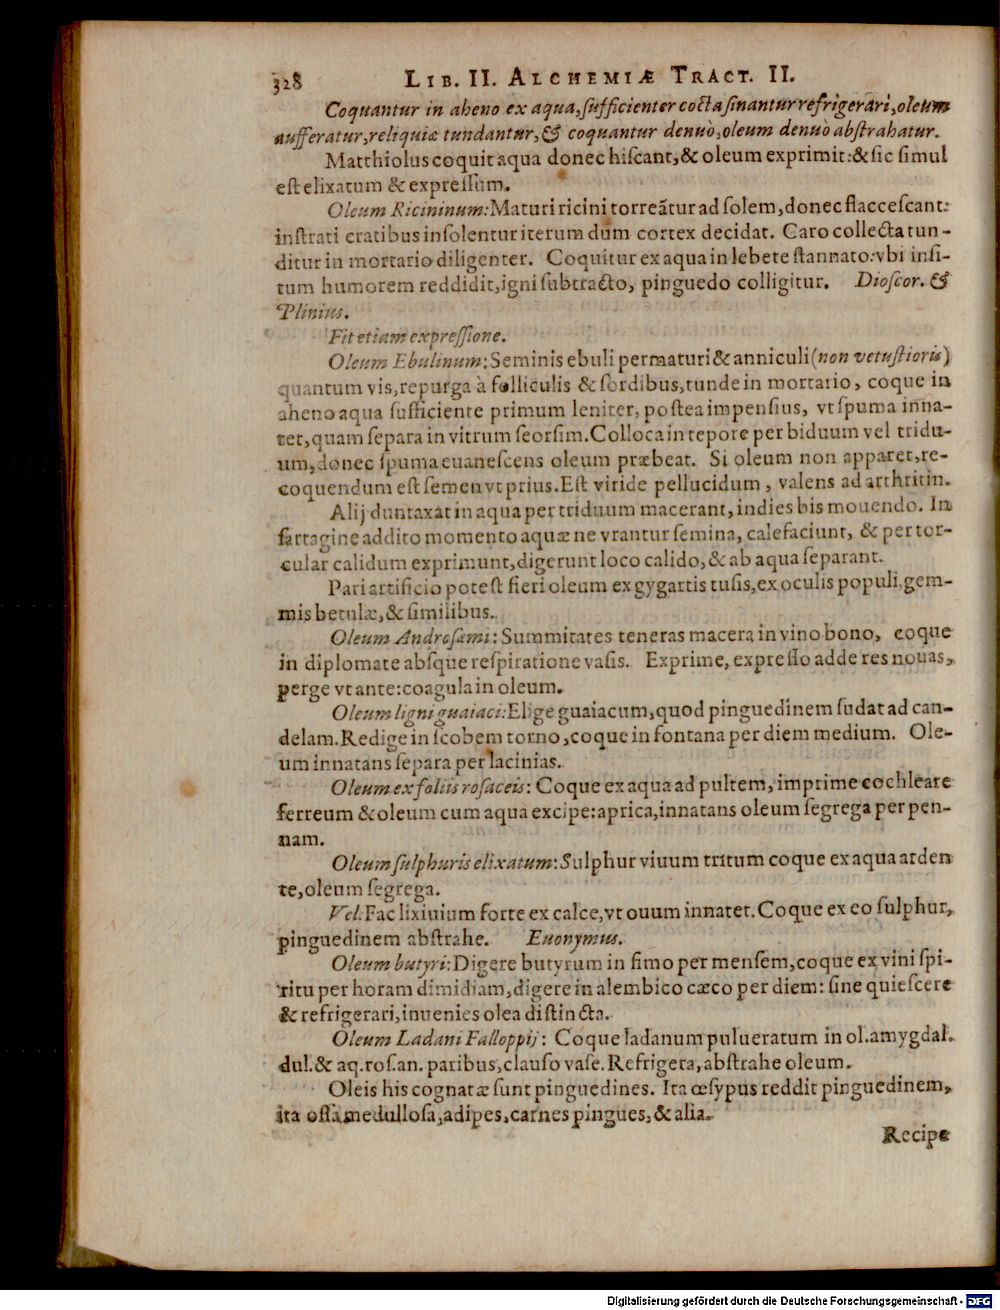 328 LIB. II. ALCHEMIÆ TRACT. II.
Coquantur in aheno ex aqua, ſufficienter cocta ſinantur refrigerari, oleum
aufferatur, reliquiæ tundantur, & coquantur denuò, oleum denuò abſtrahatur.
Matthiolus coquit aqua donec hiſcant, & oleum exprimit: & ſic ſimul
eſt elixatum & expreſſum.
Oleum Ricininum: Maturi ricini torreãtur ad ſolem, donec flacceſcant:
inſtrati cratibus inſolentur iterum dum cortex decidat. Caro collecta tun-
ditur in mortario diligenter. Coquitur ex aqua in lebete ſtannato: vbi inſi-
tum humorem reddidit, igni ſubtracto, pinguedo colligitur. Dioſcor. &
Plinius.
Fit etiam expreſſione.
Oleum Ebulinum: Seminis ebuli permaturi & anniculi (non vetuſtioris)
quantum vis, repurga à folliculis & ſordibus, tunde in mortario, coque in
aheno aqua ſufficiente primum leniter, poſtea impenſius, vt ſpuma inna-
tet, quam ſepara in vitrum ſeorſim. Colloca in tepore per biduum vel tridu-
um, donec ſpuma euaneſcens oleum præbeat. Si oleum non apparet, re-
coquendum eſt ſemen vt prius. Eſt viride pellucidum, valens ad arthritin.
Alij duntaxat in aqua per triduum macerant, indies bis mouendo. In
ſartagine addito momento aquæ ne vrantur ſemina, calefaciunt, & per tor-
cular calidum exprimunt, digerunt loco calido, & ab aqua ſeparant.
Pari artificio poteſt fieri oleum ex gygartis tuſis, ex oculis populi, gem-
mis betulæ, & ſimilibus.
Oleum Androſæmi: Summitates teneras macera in vino bono, coque
in diplomate abſque reſpiratione vaſis. Exprime, expreſſo adde res nouas,
perge vt ante: coagula in oleum.
Oleum ligni guaiaci: Elige guaiacum, quod pinguedinem ſudat ad can-
delam. Redige in ſcobem torno, coque in fontana per diem medium. Ole-
um innatans ſepara per lacinias.
Oleum ex foliis roſaceis: Coque ex aqua ad pultem, imprime cochleare
ferreum & oleum cum aqua excipe: aprica, innatans oleum ſegrega per pen-
nam.
Oleum ſulphuris elixatum: Sulphur viuum tritum coque ex aqua arden
te, oleum ſegrega.
Vel. Fac lixiuium forte ex calce, vt ouum innatet. Coque ex eo ſulphur,
pinguedinem abſtrahe. Euonymus.
Oleum butyri: Digere butyrum in fimo per menſem, coque ex vini ſpi-
ritu per horam dimidiam, digere in alembico cæco per diem: ſine quieſcere
& refrigerari, inuenies olea diſtincta.
Oleum Ladani Falloppij: Coque ladanum pulueratum in ol. amygdal.
dul. & aq. roſ. an. paribus, clauſo vaſe. Refrigera, abſtrahe oleum.
Oleis his cognatæ ſunt pinguedines. Ita œſypus reddit pinguedinem,
ita oſſa medulloſa, adipes, carnes pingues, & alia.
Recipe
Digitalisierung gefördert durch die Deutsche Forschungsgemeinschaft - DFG